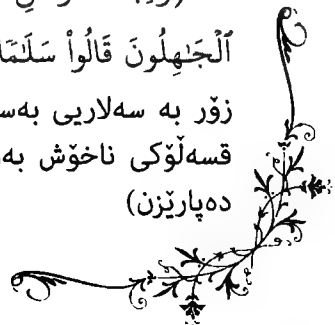 ٱلۡجَٰهِلُونَ قَالُواْ سَلَٰمٗا
زۆر بە سەلاریی بەس
قسەڵۆکی ناخۆش بە
دەپارێزن)